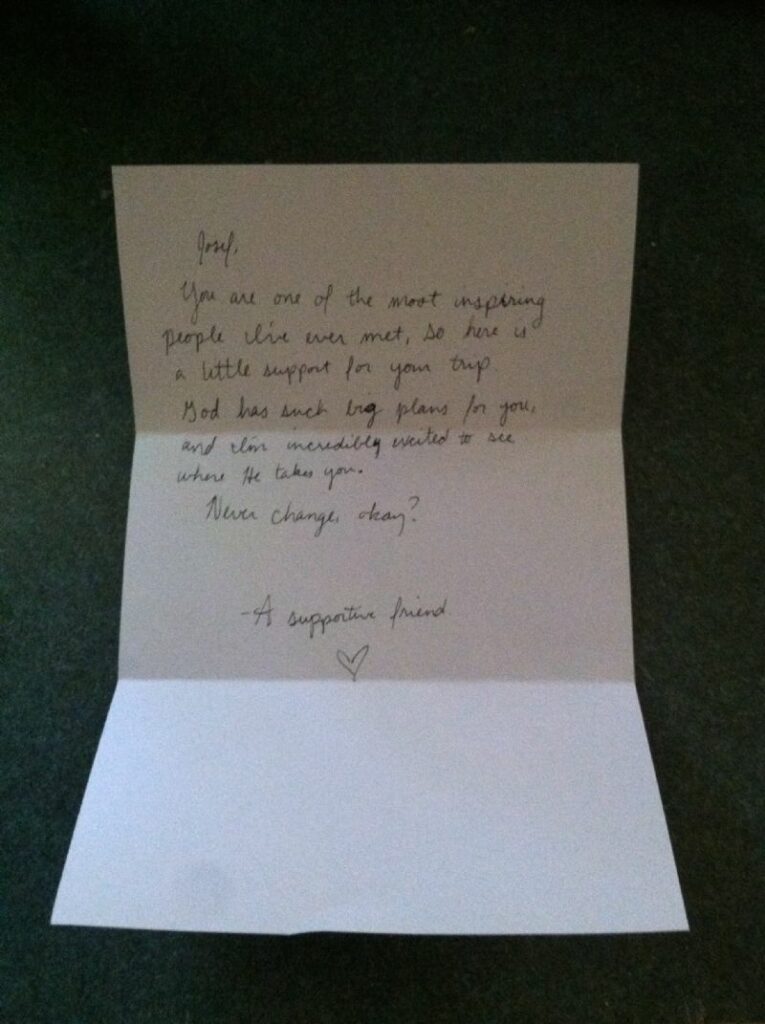 Josef,
You are one of the most inspiring
people I've ever met, so here is
a little support for your trip.
God has such big plans for you,
and I'm incredibly excited to see
where He takes you.
Never change, okay?
-A supportive friend